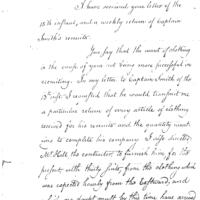 I have received your letter of the
18th instant, and a weekly return of Captain
Smith's recruits.
You say that the want of clothing
is the cause of your not being more successful in
recruiting. In my letter to Captain Smith of the
12th inst I requested that he would transmit me
a particular return of every article of clothing
received for his recruits and the quantity want
ing to complete his company. I also directed
Mr Hall the contractor, to furnish him for the
present with thirty suits, from the clothing which
was expected hourly from the Eastward, and
no doubt must by this time have arrived